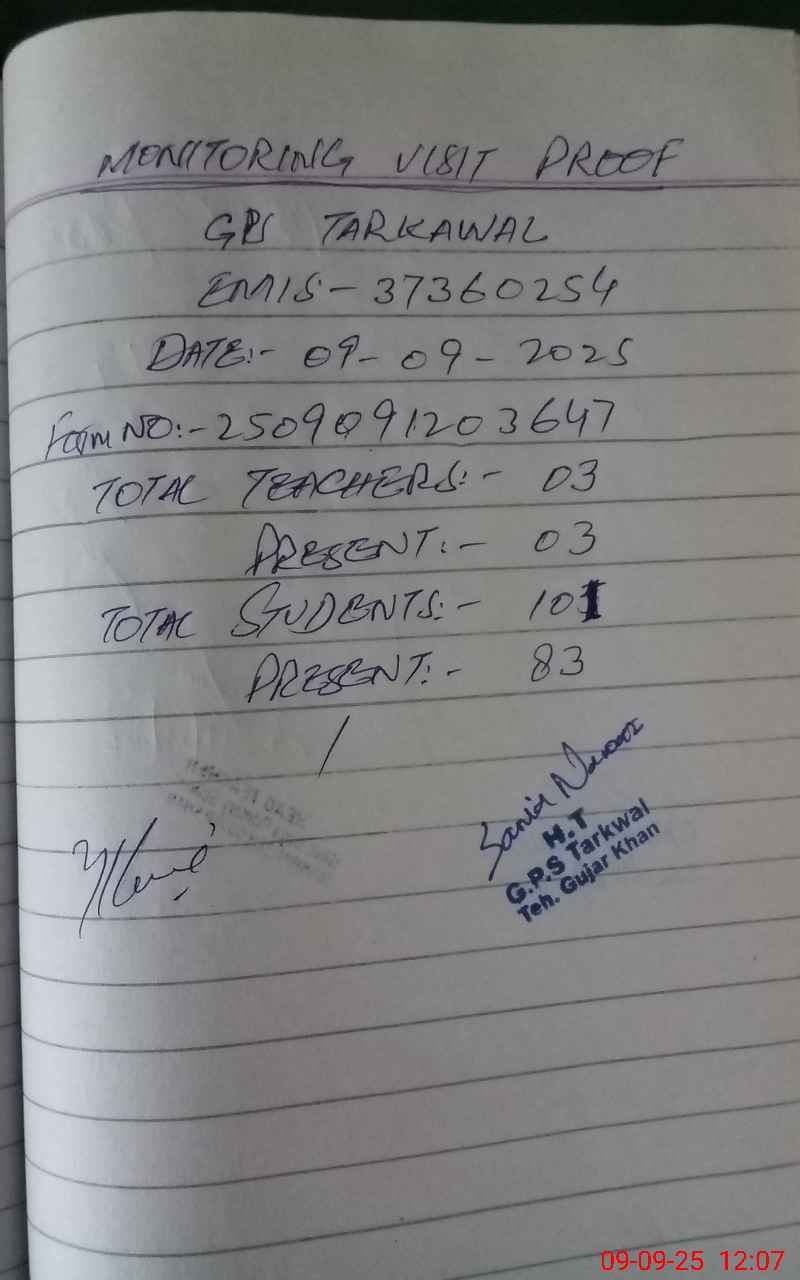 MONITORING VISIT PROOF
GPS TARKAWAL
EMIS - 37360254
DATE:- 09-09-2025
Form NO:- 2509091203647
TOTAL TEACHERS:- 03
PRESENT:- 03
TOTAL STUDENTS:- 101
PRESENT:- 83
H.T
G.P.S Tarkwal
Teh. Gujar Khan
09-09-25 12:07